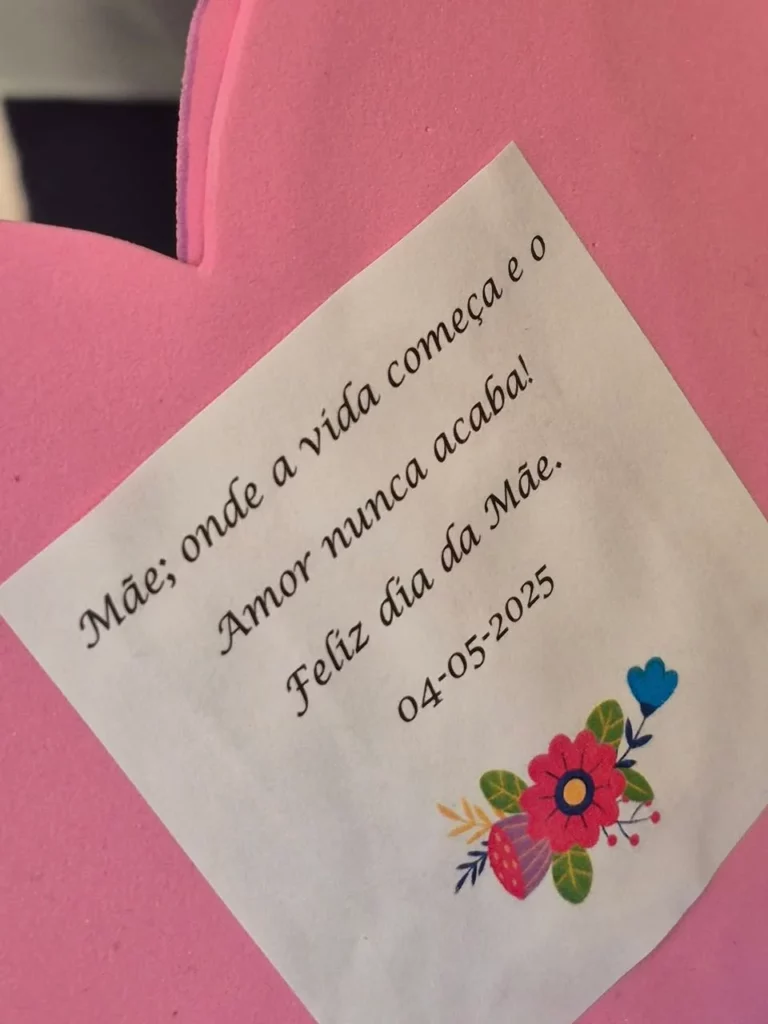 Mãe; onde a vida começa e o
Amor nunca acaba!
Feliz dia da Mãe.
04-05-2025